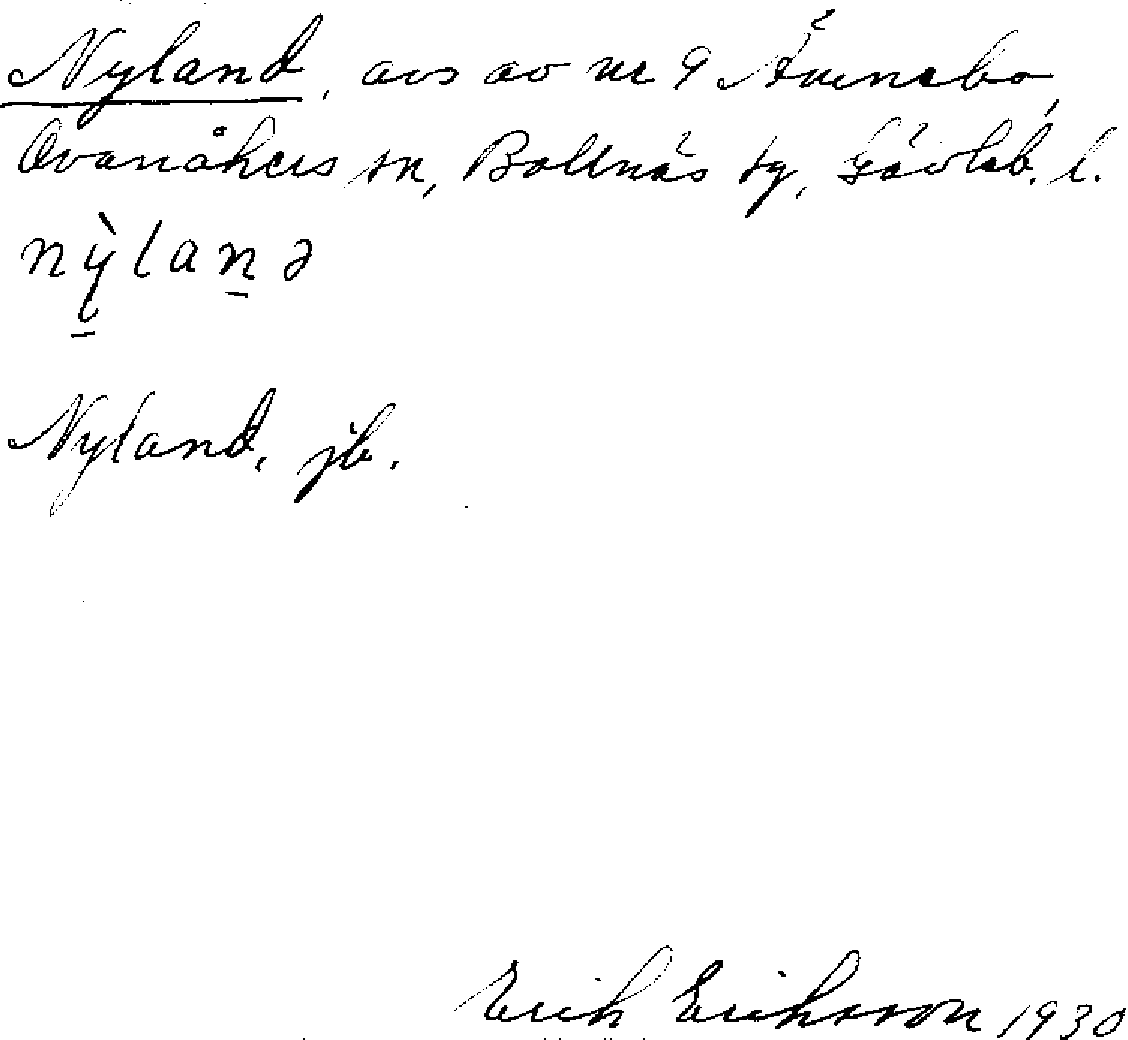 Nyland, avs av nr 9 Ämnebo,
Ovanåkers sn, Bollnäs tg, Gävleb. l.
nỳlaṉə
Nyland, jb.
Erik Eriksson 1930